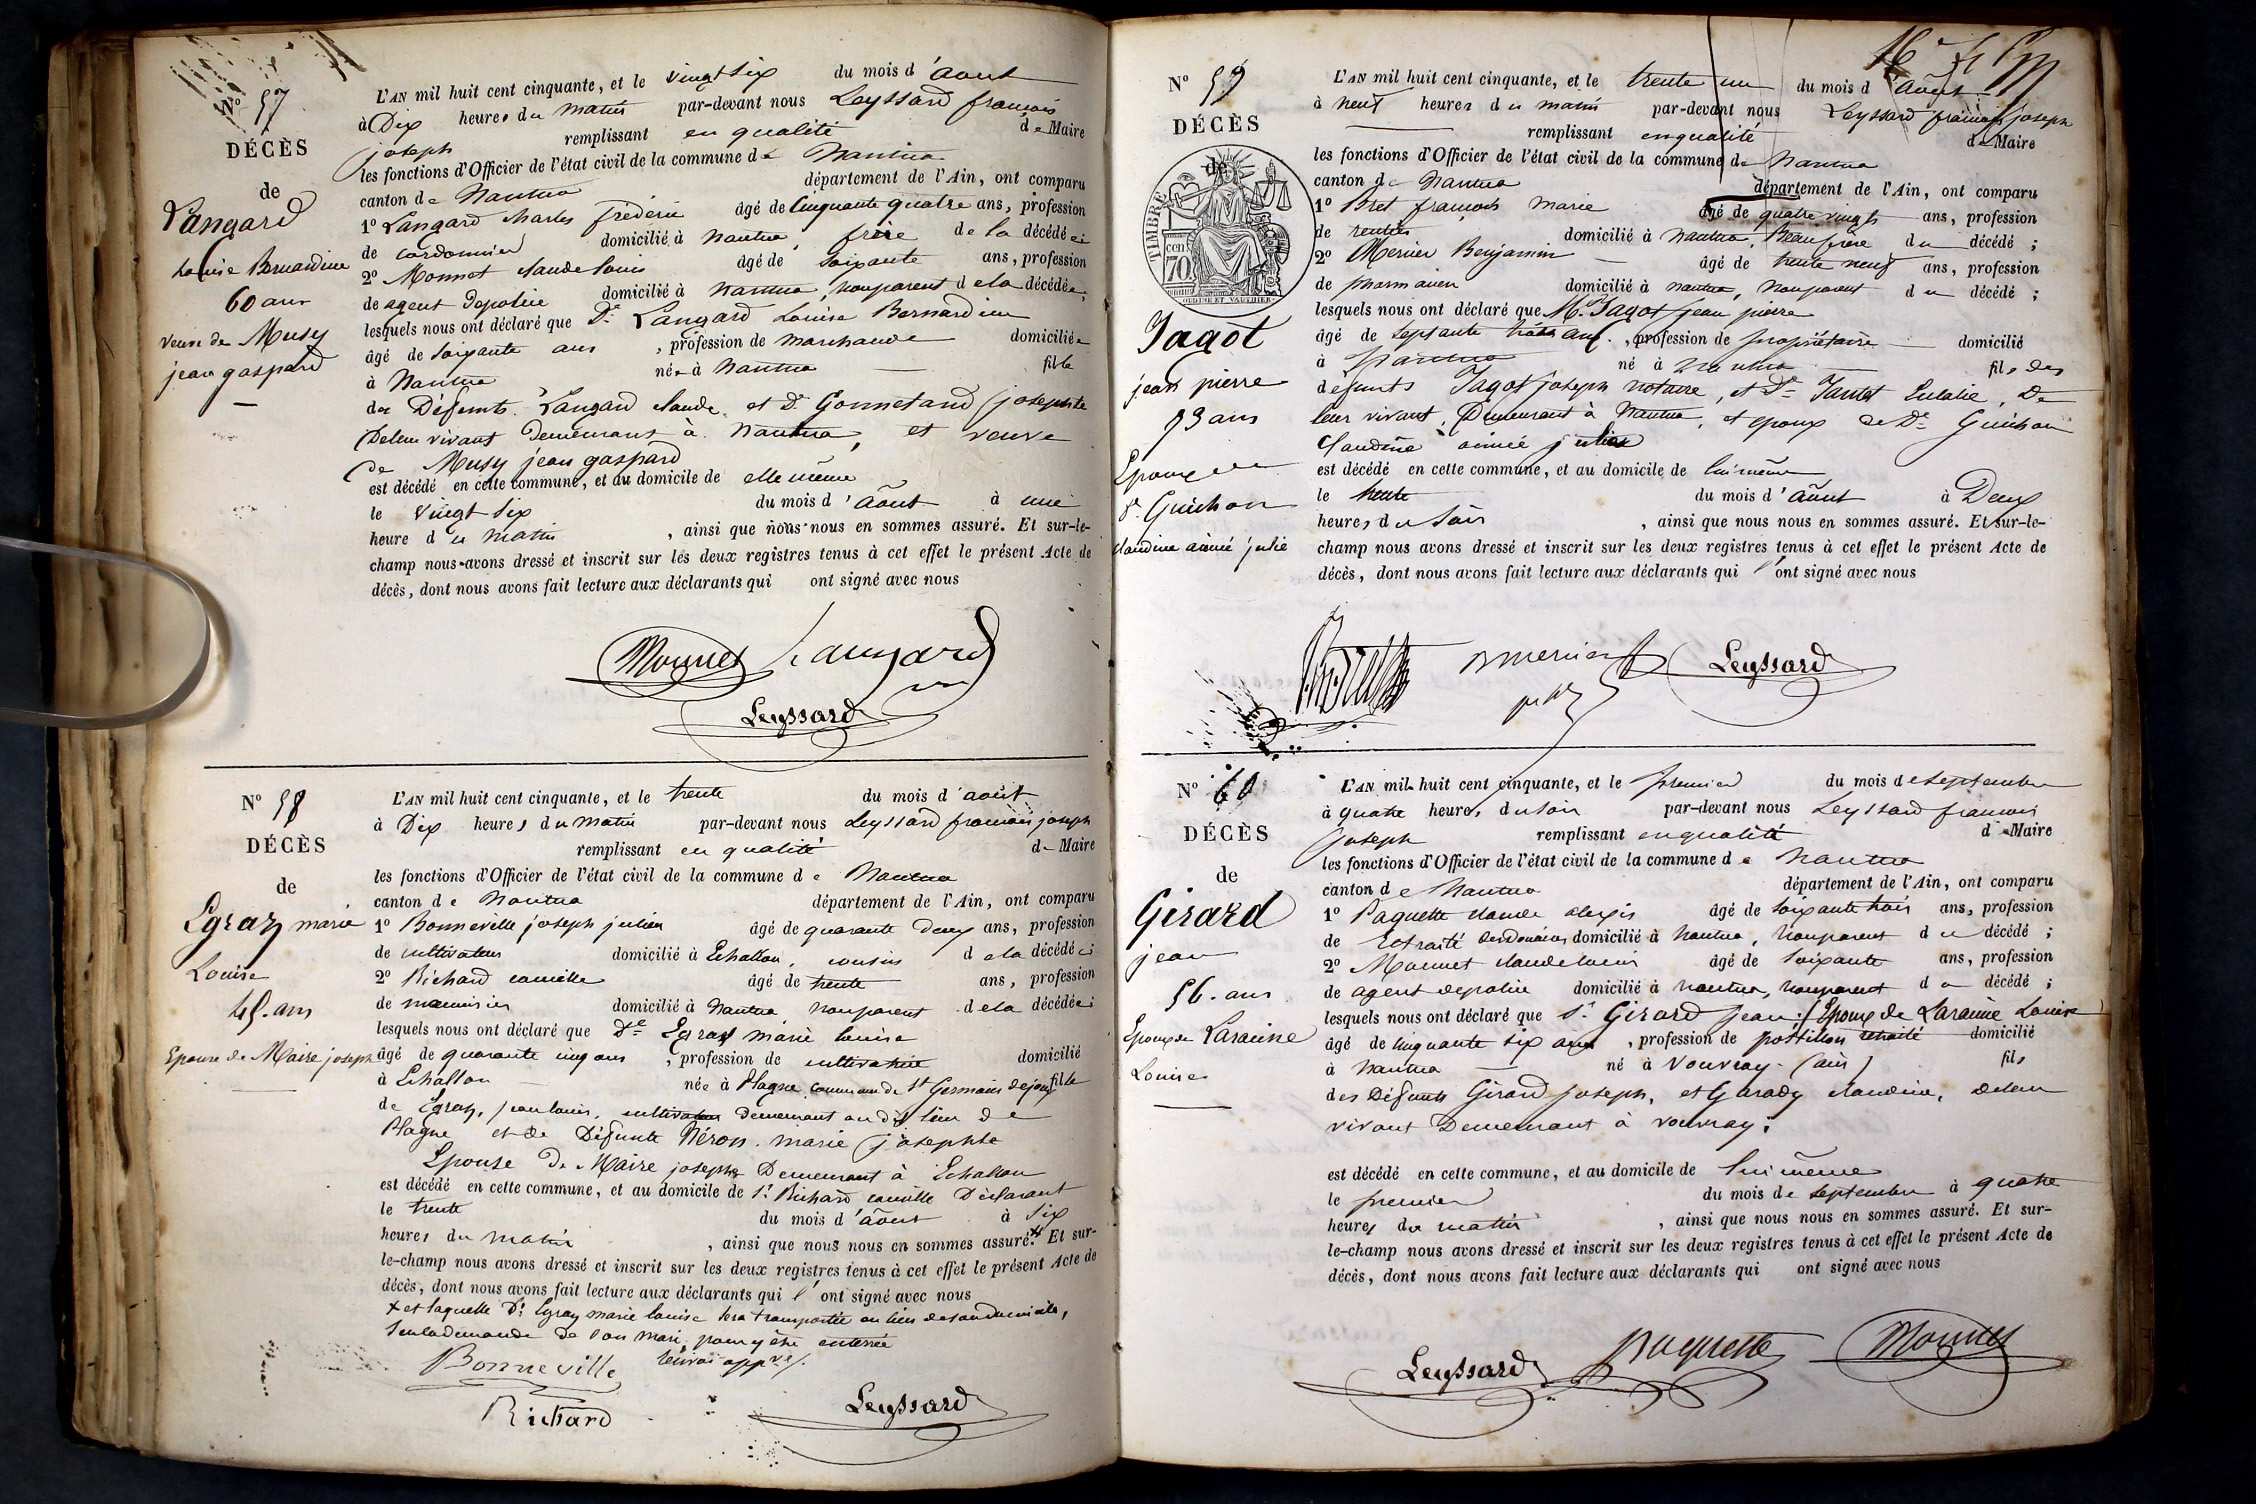 N° 57
DÉCÈS
de
Langard
Louise Bernardine
60 ans
veuve de Musy
jean gaspard
L'AN mil huit cent cinquante, et le vingt six du mois d'aout
à Dix heures du matin par-devant nous Leyssard françois
joseph remplissant en qualité de Maire
les fonctions d'Officier de l'état civil de la commune de Nantua
canton de Nantua département de l'Ain, ont comparu
1° Langard charles frédéric âgé de Cinquante quatre ans, profession
de cordonnier domicilié à Nantua, frère de la décédée;
2° Monnet claude louis âgé de soixante ans, profession
de agent de police domicilié à Nantua, non parent de la décédée;
lesquels nous ont déclaré que De Langard Louise Bernardine
âgé de soixante ans, profession de marchande domiciliée
à Nantua née à Nantua fille
des Défunts Langard claude et De Gonnetand josephte
De leur vivant demeurant à Nantua, et veuve
de Musy jean gaspard
est décédé en cette commune, et au domicile de elle même
le vingt six du mois d'Août à une
heure du matin, ainsi que nous nous en sommes assuré. Et sur-le-
champ nous avons dressé et inscrit sur les deux registres tenus à cet effet le présent Acte de
décès, dont nous avons fait lecture aux déclarants qui ont signé avec nous
Monnet Langard
Leyssard
N° 58
DÉCÈS
de
Egraz marie
Louise
45. ans
Epouse de Maire joseph
L'AN mil huit cent cinquante, et le trente du mois d'août
à Dix heures du matin par-devant nous Leyssard françois joseph
remplissant en qualité de Maire
les fonctions d'Officier de l'état civil de la commune de Nantua
canton de Nantua département de l'Ain, ont comparu
1° Bonneville joseph julien âgé de quarante deux ans, profession
de cultivateur domicilié à Echallon, cousin de la décédée;
2° Richard camille âgé de trente ans, profession
de menuisier domicilié à Nantua, non parent de la décédée;
lesquels nous ont déclaré que De Egraz marie louise
âgé de quarante cinq ans, profession de cultivatrice domicilié
à Echallon née à Plagne commune de St Germain de joux fille
de Egraz, jean louis, cultivateur demeurant au dit lieu de
Plagne et de Défunte Néron marie josephte
Epouse de Maire joseph Demeurant à Echallon
est décédé en cette commune, et au domicile de Sr Richard camille Déclarant
le trente du mois d'août à six
heures du matin, ainsi que nous nous en sommes assuré. x Et sur-
le-champ nous avons dressé et inscrit sur les deux registres tenus à cet effet le présent Acte de
décès, dont nous avons fait lecture aux déclarants qui l'ont signé avec nous
x et laquelle De Egraz marie louise sera transportée au lieu de son domicile,
sur la demande de son mari, pour y être enterrée
renvoi appvé/.
Bonneville
Richard Leyssard
N° 59
DÉCÈS
de
TIMBRE
70 cen
Jagot
jean pierre
73 ans
Epoux de
De Guichon
claudine aimée julie
L'AN mil huit cent cinquante, et le trente un du mois d'Août
à neuf heures du matin par-devant nous Leyssard françois joseph
remplissant en qualité de Maire
les fonctions d'Officier de l'état civil de la commune de Nantua
canton de Nantua département de l'Ain, ont comparu
1° Bret françois marie âgé de quatre vingts ans, profession
de rentier domicilié à Nantua, Beau frère du décédé;
2° Mercier Benjamin âgé de trente neuf ans, profession
de pharmacien domicilié à Nantua, non parent du décédé;
lesquels nous ont déclaré que Mr Jagot jean pierre
âgé de septante trois ans, profession de propriétaire domicilié
à Nantua né à Nantua fils des
défunts Jagot joseph notaire, et De Jantet Eulalie, De
leur vivant, Demeurant à Nantua, et epoux de De Guichon
Claudine aimée julie
est décédé en cette commune, et au domicile de lui même
le trente du mois d'Août à Deux
heures du soir, ainsi que nous nous en sommes assuré. Et sur-le-
champ nous avons dressé et inscrit sur les deux registres tenus à cet effet le présent Acte de
décès, dont nous avons fait lecture aux déclarants qui l'ont signé avec nous
Bret Bmercier Leyssard
N° 60
DÉCÈS
de
Girard
jean
56. ans
Epoux de Laraine
Louise
L'AN mil huit cent cinquante, et le premier du mois de septembre
à quatre heures du soir par-devant nous Leyssard françois
joseph remplissant en qualité de Maire
les fonctions d'Officier de l'état civil de la commune de Nantua
canton de Nantua département de l'Ain, ont comparu
1° Paquette claude alexis âgé de soixante trois ans, profession
de Retraité des Douanes domicilié à Nantua, non parent du décédé;
2° Monnet claude louis âgé de soixante ans, profession
de agent de police domicilié à nantua, non parent du décédé;
lesquels nous ont déclaré que Sr Girard jean. (Epoux de Laraine Louise
âgé de cinquante six ans, profession de postillon retraité domicilié
à Nantua né à Vouvray (ain) fils
des Défunts Girard joseph, et Garady claudine, de leur
vivant Demeurant à Vouvray.
est décédé en cette commune, et au domicile de lui même
le premier du mois de septembre à quatre
heures du matin, ainsi que nous nous en sommes assuré. Et sur-
le-champ nous avons dressé et inscrit sur les deux registres tenus à cet effet le présent Acte de
décès, dont nous avons fait lecture aux déclarants qui ont signé avec nous
Leyssard Paquette Monnet